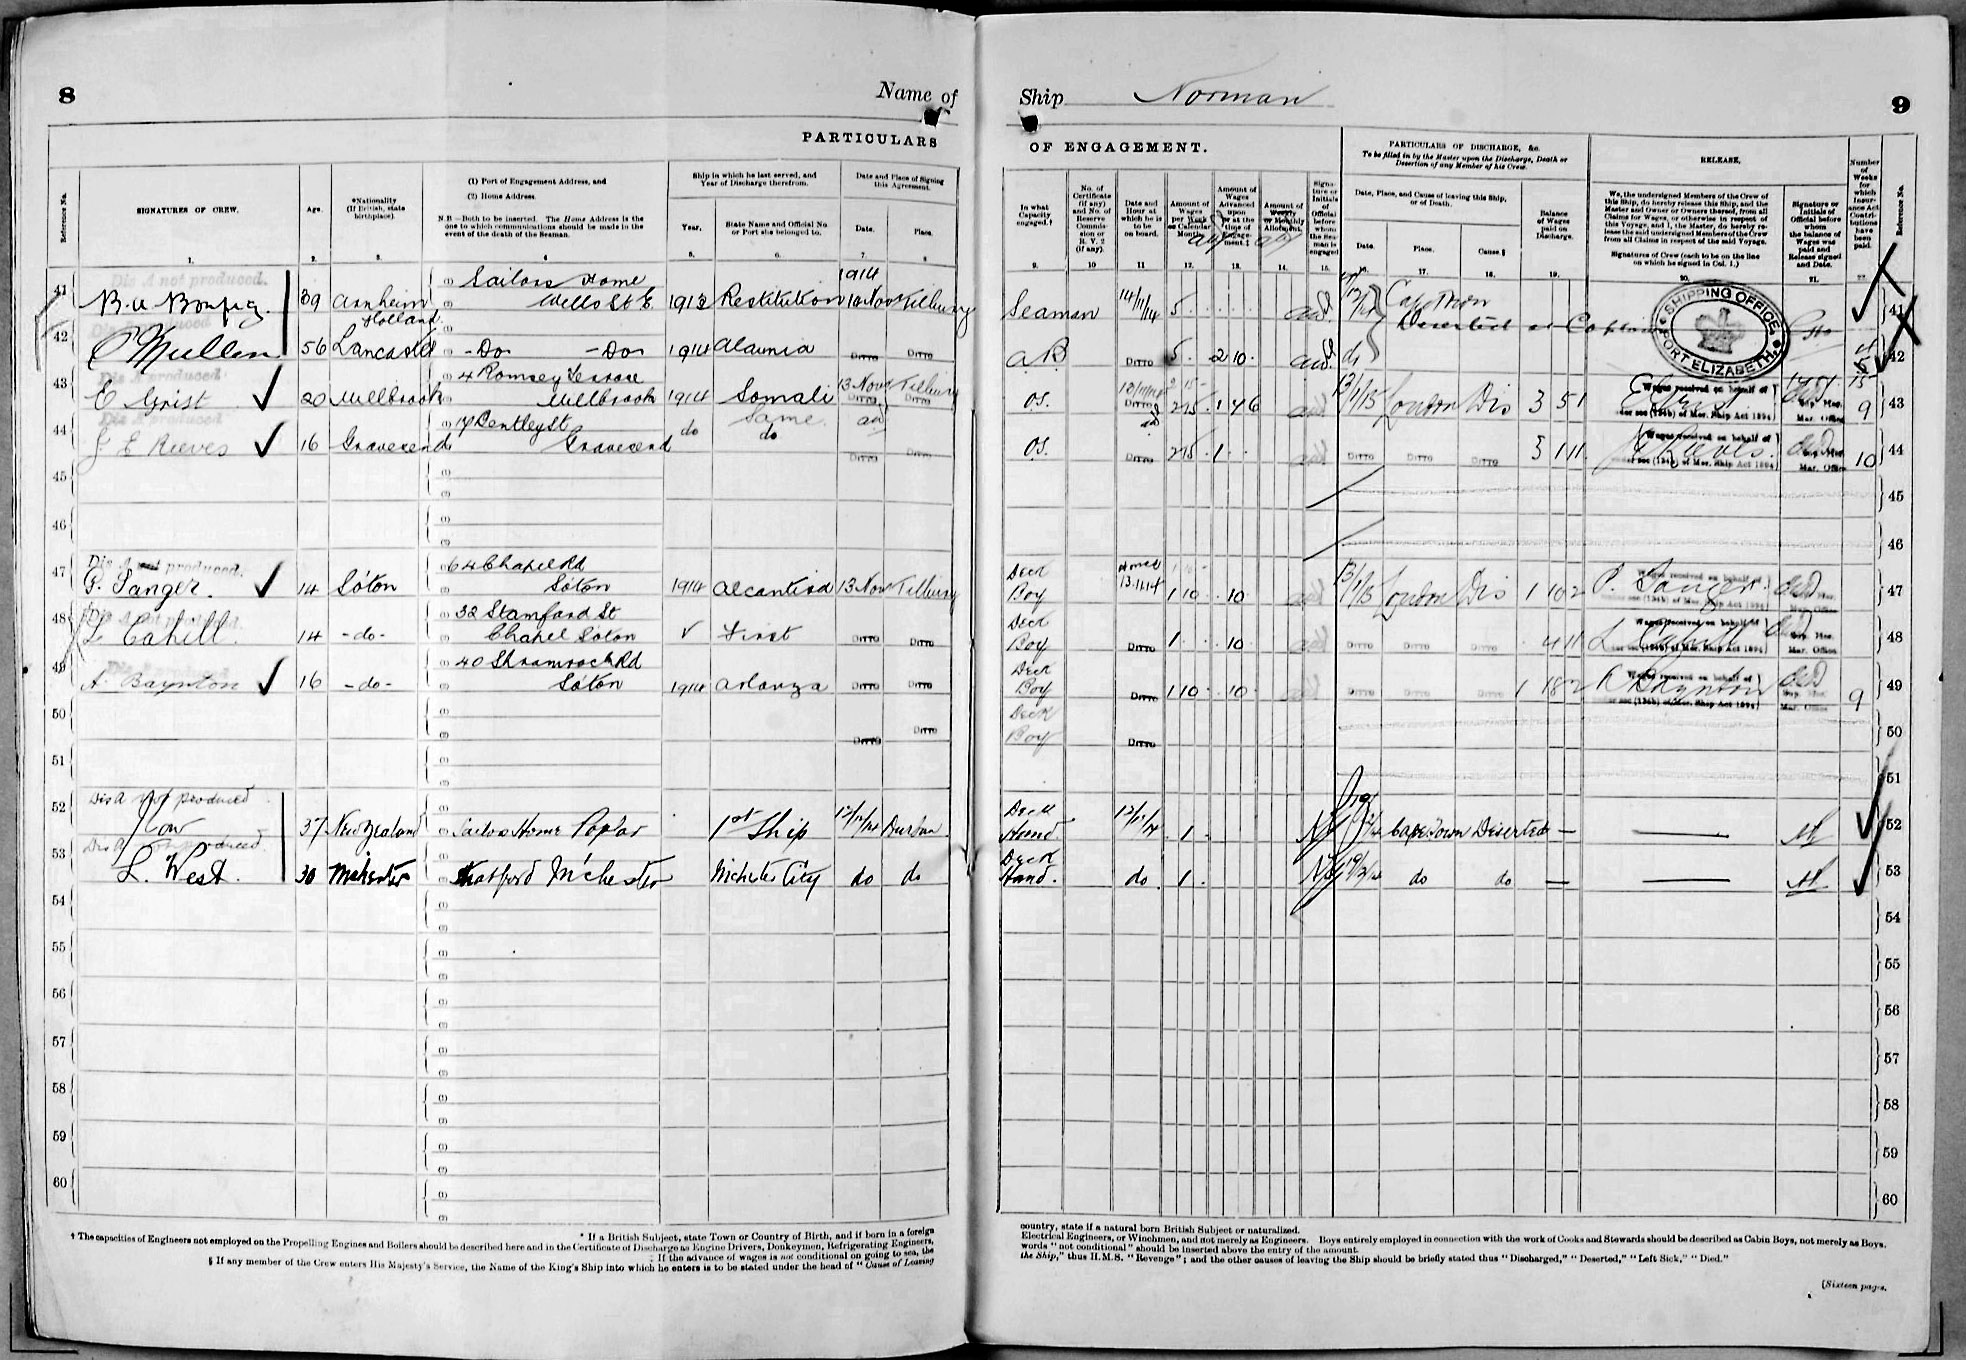 8
Name of
PARTICULARS
Reference No.
SIGNATURES OF CREW.
Age.
*Nationality
(If British, state
birthplace).
(1) Port of Engagement Address, and
(2) Home Address.
N.B.—Both to be inserted. The Home Address is the
one to which communications should be made in the
event of the death of the Seaman.
Ship in which he last served, and
Year of Discharge therefrom.
Year.
State Name and Official No.
or Port she belonged to.
Date and Place of Signing
this Agreement.
Date.
Place.
1. 2. 3. 4 5. 6. 7. 8
Dis A not produced.
(1) Sailors Home
1914
41 39 Arnheim Wells St E. 1913 Restitution 10 Nov Tilbury
Holland
42 C Mullen 56 Lancaster -Do- -Do- 1914 Alaunia Ditto Ditto
Dis A produced.
43 (1) 4 Romsey Terrace 13 Nov Tilbury
E Grist 20 Millbrook Millbrook 1914 Somali Ditto Ditto
44 (1) 17 Bentley St Same
J E Reeves 16 Gravesend Gravesend do do Ditto Ditto
45
46
Dis A not produced.
47 64 Chapel Rd
P. Sanger. 14 Soton Soton 1914 Alcantara 13 Nov Tilbury
48 32 Stamford St
L Cahill. 14 -do- Chapel Soton First Ditto Ditto
49 40 Shamrock Rd
A. Baynton 16 -do- Soton 1914 Arlanza Ditto Ditto
50 Ditto Ditto
51
Dis A not produced
52 Low 37 New Zealand Sailors Home Poplar 1st Ship 12/12/14 Durban
53 L. West. 30 Mchester Stratford M'chester M'chester City do do
54
55
56
57
58
59
60
* If a British Subject, state Town or Country of Birth, and if born in a foreign
† The capacities of Engineers not employed on the Propelling Engines and Boilers should be described here and in the Certificate of Discharge as Engine Drivers, Donkeymen, Refrigerating Engineers,
‡ If the advance of wages is not conditional on going to sea, the
§ If any member of the Crew enters His Majesty's Service, the Name of the King's Ship into which he enters is to be stated under the head of "Cause of Leaving
Ship Norman
9
OF ENGAGEMENT.
PARTICULARS OF DISCHARGE, &c.
To be filled in by the Master upon the Discharge, Death or
Desertion of any Member of his Crew.
RELEASE.
In what
Capacity
engaged.†
No. of
Certificate
(if any)
and No. of
Reserve
Commis-
sion or
R. V. 2
(if any).
Date and
Hour at
which he is
to be
on board.
Amount of
Wages
per Week
or Calendar
Month.
Amount of
Wages
Advanced
upon
or at the
time of
Engage-
ment.‡
Amount of
Weekly
or Monthly
Allotment.
Signa-
ture or
Initials
of
Official
before
whom
the Sea-
man is
engaged
Date, Place, and Cause of leaving this Ship,
or of Death.
Date.
Place.
Cause.§
Balance
of Wages
paid on
Discharge.
We, the undersigned Members of the Crew of
this Ship, do hereby release this Ship, and the
Master and Owner or Owners thereof, from all
Claims for Wages, or otherwise in respect of
this Voyage, and I, the Master, do hereby re-
lease the said undersigned Members of the Crew
from all Claims in respect of the said Voyage.
Signatures of Crew (each to be on the line
on which he signed in Col. 1.)
Signature or
Initials of
Official before
whom
the balance of
Wages was
paid and
Release signed
and Date.
Number
of
Weeks
for
which
Insur-
ance Act
Contri-
butions
have
been
paid.
Reference No.
9. 10 11 12. 13. 14. 15. 16. 17. 18. 19. 20. 21. 22.
Seaman 14/11/14 5 Cape Town 41
Deserted at Capetown
SHIPPING OFFICE PORT ELIZABETH
AB Ditto 5 2 10 42
OS. Ditto 2 15 1 7 6 13/1/15 London Dis 3 5 1 E Grist 9 43
Wages received on behalf of
under sec (194b) of Mer. Ship Act 1894
Sup. Mer.
Mar. Office
OS. Ditto 2 15 1 Ditto Ditto Ditto 3 1 11 J E Reeves. 10 44
45
46
Deck
Boy 13.11.14 1 10 10 13/1/15 London Dis 1 10 2 P. Sanger. 47
Deck
Boy Ditto 1 10 Ditto Ditto Ditto 4 11 L Cahill 48
Deck
Boy Ditto 1 10 10 Ditto Ditto Ditto 1 18 2 A Baynton 9 49
Deck
Boy Ditto 50
51
Deck
Hand 12/12/14 1 Cape Town Deserted — 52
Deck
Hand. do 1 19/12/14 do do — 53
54
55
56
57
58
59
60
country, state if a natural born British Subject or naturalized.
Electrical Engineers, or Winchmen, and not merely as Engineers. Boys entirely employed in connection with the work of Cooks and Stewards should be described as Cabin Boys, not merely as Boys.
words "not conditional" should be inserted above the entry of the amount.
the Ship," thus H.M.S. "Revenge"; and the other causes of leaving the Ship should be briefly stated thus "Discharged," "Deserted," "Left Sick," "Died."
[Sixteen pages.